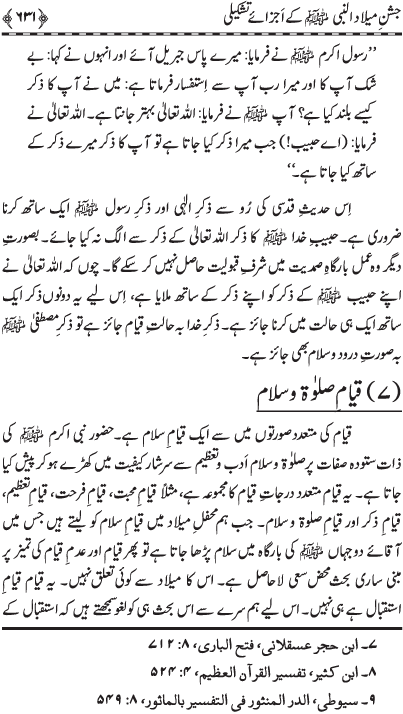 جشنِ میلاد النبی ﷺ کے اَجزائے تشکیلی ﴿۶۳۱﴾
’’رسول اکرم ﷺ نے فرمایا: میرے پاس جبریل آئے اور انہوں نے کہا: بے
شک آپ کا اور میرا رب آپ سے اِستفسار فرماتا ہے: میں نے آپ کا ذکر
کیسے بلند کیا ہے؟ آپ ﷺ نے فرمایا: اللہ تعالیٰ بہتر جانتا ہے۔ اللہ تعالیٰ نے
فرمایا: (اے حبیب!) جب میرا ذکر کیا جاتا ہے تو آپ کا ذکر میرے ذکر کے
ساتھ کیا جاتا ہے۔‘‘
اِس حدیثِ قدسی کی رُو سے ذکرِ الٰہی اور ذکرِ رسول ﷺ ایک ساتھ کرنا
ضروری ہے۔ حبیبِ خدا ﷺ کا ذکر اللہ تعالیٰ کے ذکر سے الگ نہ کیا جائے۔ بصورتِ
دیگر وہ عمل بارگاہِ صمدیت میں شرفِ قبولیت حاصل نہیں کر سکے گا۔ چوں کہ اللہ تعالیٰ نے
اپنے حبیب ﷺ کے ذکر کو اپنے ذکر کے ساتھ ملایا ہے، اِس لیے یہ دونوں ذکر ایک
ساتھ ایک ہی حالت میں کرنا جائز ہے۔ ذکرِ خدا بہ حالتِ قیام جائز ہے تو ذکرِ مصطفیٰ ﷺ
بہ صورتِ درود و سلام بھی جائز ہے۔
(۷) قیامِ صلوٰۃ و سلام
قیام کی متعدد صورتوں میں سے ایک قیامِ سلام ہے۔ حضور نبی اکرم ﷺ کی
ذات ستودہ صفات پر صلوٰۃ و سلام اَدب و تعظیم سے سرشار کیفیت میں کھڑے ہو کر پیش کیا
جاتا ہے۔ یہ قیام متعدد درجاتِ قیام کا مجموعہ ہے، مثلاً قیامِ محبت، قیامِ فرحت، قیامِ تعظیم،
قیامِ ذکر اور قیامِ صلوٰۃ و سلام۔ جب ہم محفلِ میلاد میں قیامِ سلام کو لیتے ہیں جس میں
آقائے دو جہاں ﷺ کی بارگاہ میں سلام پڑھا جاتا ہے تو پھر قیام اور عدمِ قیام کی تمیز پر
مبنی ساری بحث محض سعی لا حاصل ہے۔ اس کا میلاد سے کوئی تعلق نہیں۔ یہ قیام قیامِ
استقبال ہے ہی نہیں۔ اس لیے ہم سرے سے اس بحث ہی کو لغو سمجھتے ہیں کہ استقبال کے
۷۔ ابن حجر عسقلانی، فتح الباری، ۸: ۷۱۲
۸۔ ابن کثیر، تفسیر القرآن العظیم، ۴: ۵۲۴
۹۔ سیوطی، الدر المنثور فی التفسیر بالماثور، ۸: ۵۴۹